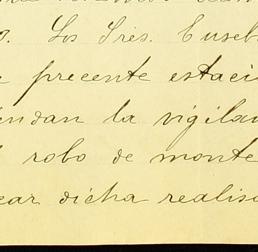 o. Los Sres. Euseb
precente estaci
endan la vigilan
robo de monte
ear dicha realisa